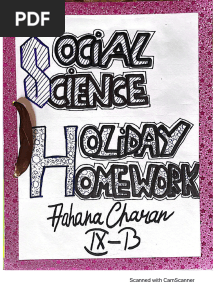 PDF
SOCIAL
SCIENCE
HOLiDAY
HOMEWORK
Ahana Charan
IX-B
Scanned with CamScanner